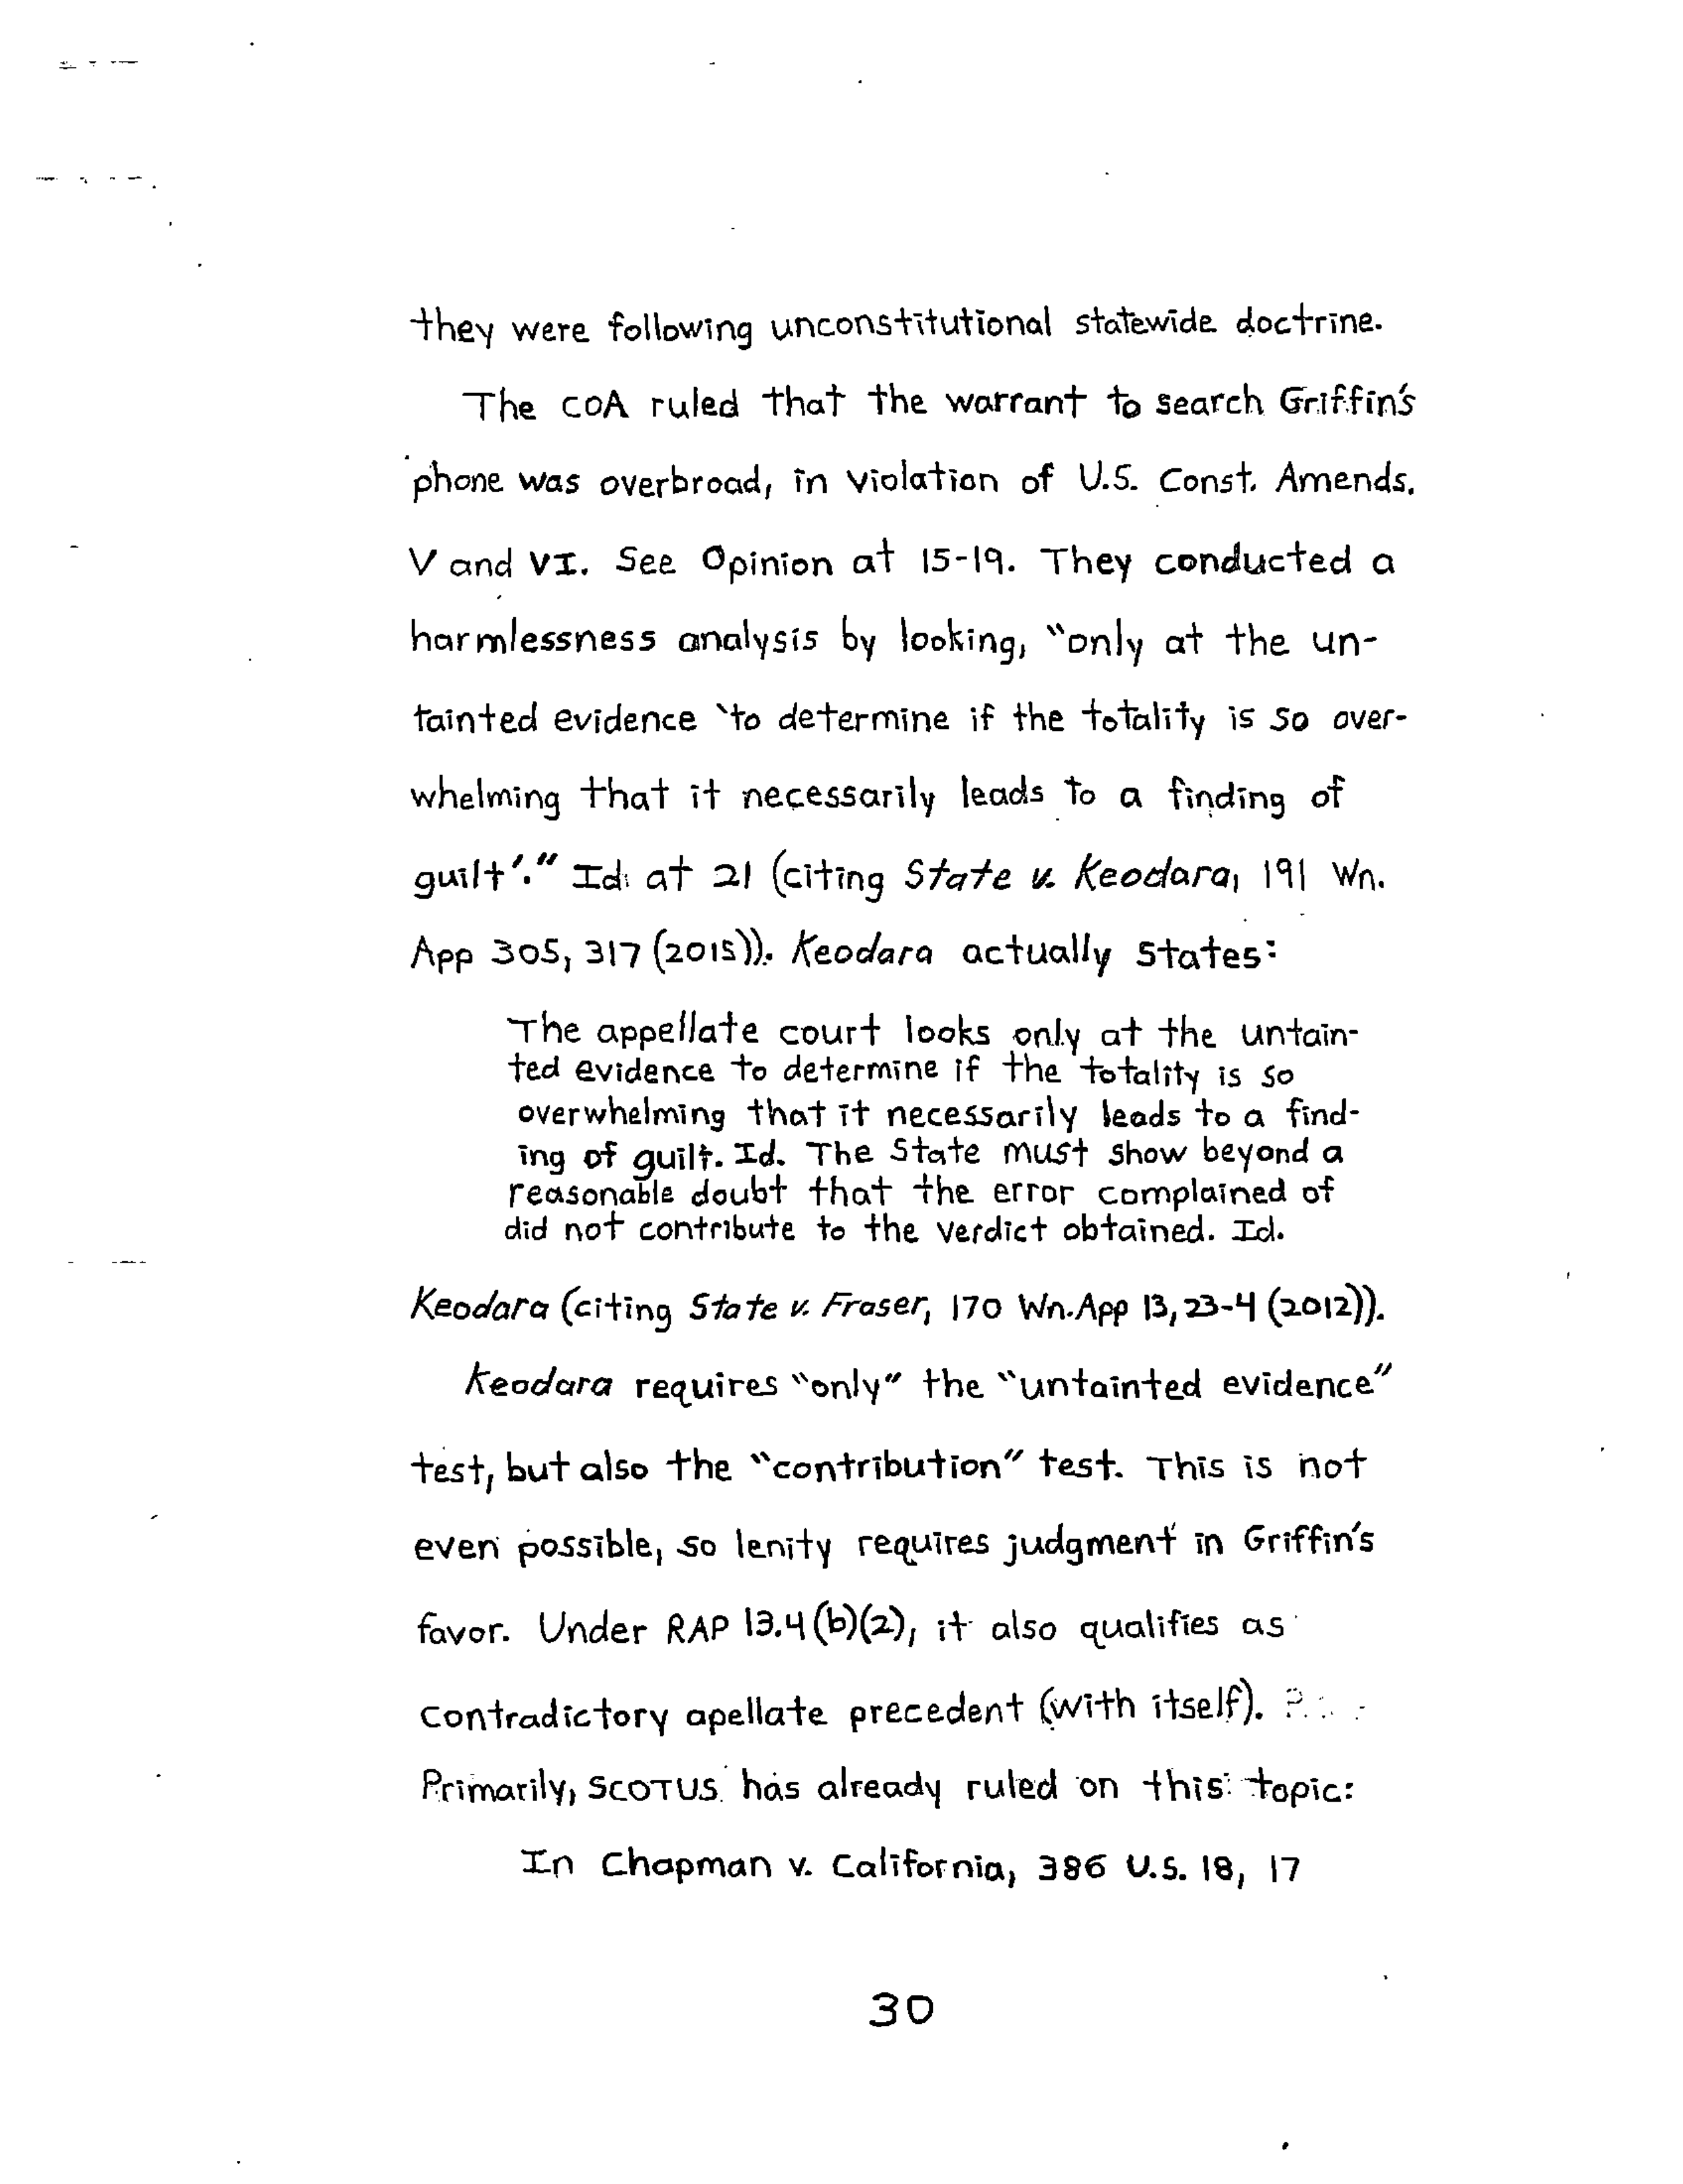 they were following unconstitutional statewide doctrine.
The COA ruled that the warrant to search Griffin's
phone was overbroad, in violation of U.S. Const. Amends.
V and VI. See Opinion at 15-19. They conducted a
harmlessness analysis by looking, "only at the un-
tainted evidence 'to determine if the totality is so over-
whelming that it necessarily leads to a finding of
guilt'." Id. at 21 (citing State v. Keodara, 191 Wn.
App 305, 317 (2015)). Keodara actually states:
The appellate court looks only at the untain-
ted evidence to determine if the totality is so
overwhelming that it necessarily leads to a find-
ing of guilt. Id. The State must show beyond a
reasonable doubt that the error complained of
did not contribute to the verdict obtained. Id.
Keodara (citing State v. Fraser, 170 Wn.App 13, 23-4 (2012)).
Keodara requires "only" the "untainted evidence"
test, but also the "contribution" test. This is not
even possible, so lenity requires judgment in Griffin's
favor. Under RAP 13.4(b)(2), it also qualifies as
contradictory apellate precedent (with itself).
Primarily, SCOTUS has already ruled on this topic:
In Chapman v. California, 386 U.S. 18, 17
30